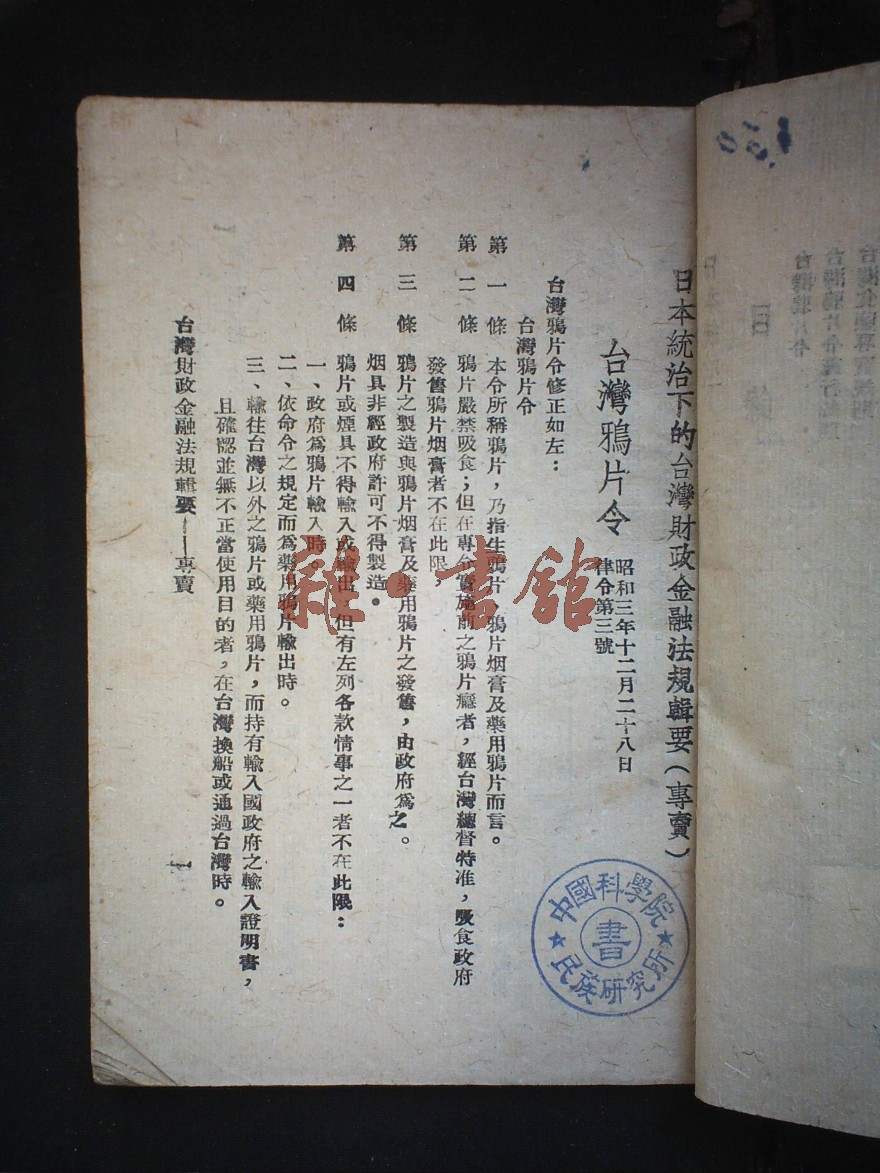 日本統治下的台灣財政金融法規輯要(專賣)
台灣鴉片令
昭和三年十二月二十八日
律令第三號
台灣鴉片令修正如左：
台灣鴉片令
第一條 本令所稱鴉片，乃指生鴉片，鴉片烟膏及藥用鴉片而言。
第二條 鴉片嚴禁吸食；但在本令實施前之鴉片癮者，經台灣總督特准，吸食政府
發售鴉片烟膏者不在此限。
第三條 鴉片之製造與鴉片烟膏及藥用鴉片之發售，由政府爲之。
烟具非經政府許可不得製造。
第四條 鴉片或煙具不得輸入或輸出，但有左列各款情事之一者不在此限：
一、政府爲鴉片輸入時。
二、依命令之規定而爲藥用鴉片輸出時。
三、輸往台灣以外之鴉片或藥用鴉片，而持有輸入國政府之輸入證明書，
且確認並無不正當使用目的者，在台灣換船或通過台灣時。
台灣財政金融法規輯要——專賣
一
中國科學院
書
民族研究所
雜·書館
目
台灣鴉片令